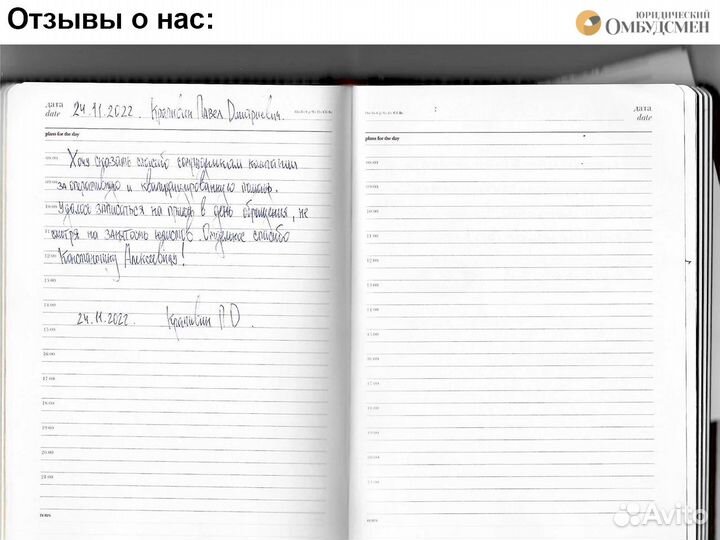 Отзывы о нас:
ЮРИДИЧЕСКИЙ
ОМБУДСМЕН
дата
date
24.11.2022. Крапивин Павел Дмитриевич.
дата
date
plans for the day
plans for the day
08:00
Хочу сказать спасибо сотрудникам компании
09:00
за оперативную и квалифицированную помощь.
10:00
Удалось записаться на приём в день обращения, не
11:00
смотря на занятость юристов. Отдельное спасибо
12:00
Константину Алексеевичу!
13:00
14:00
24.11.2022. Крапивин П.Д.
15:00
16:00
17:00
18:00
19:00
20:00
21:00
notes
08:00
09:00
10:00
11:00
12:00
13:00
14:00
15:00
16:00
17:00
18:00
19:00
20:00
21:00
notes
Avito